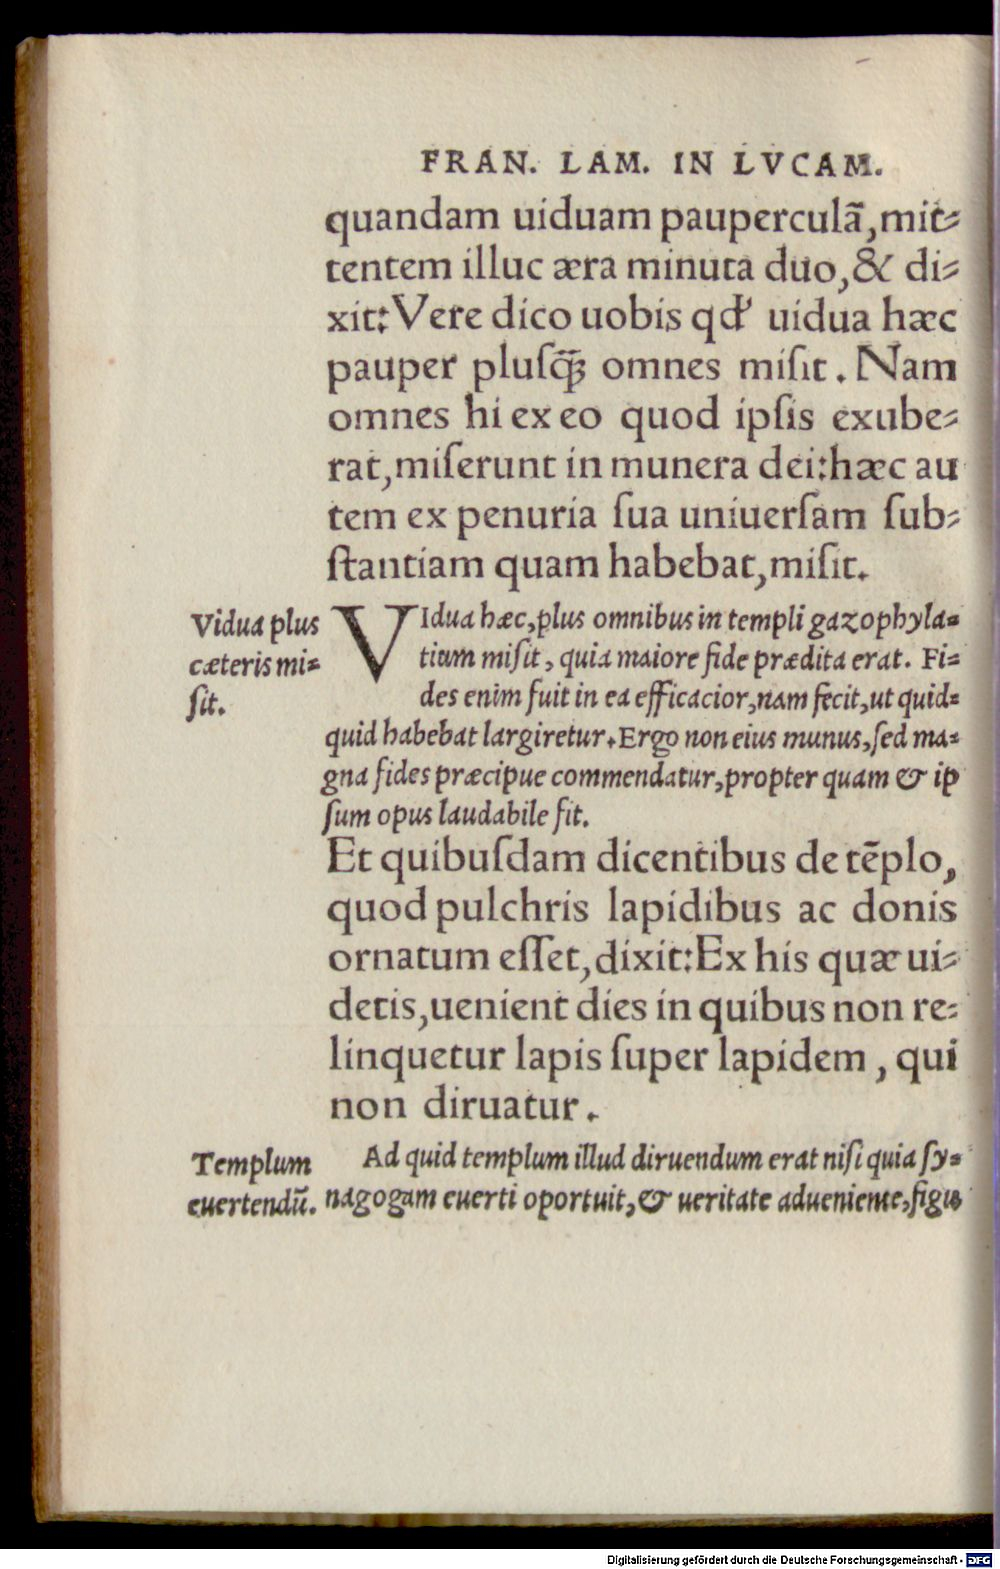 FRAN. LAM. IN LVCAM.
quandam uiduam pauperculã, mit⸗
tentem illuc æra minuta duo, & di⸗
xit: Vere dico uobis qđ uidua hæc
pauper pluſq̃ȝ omnes miſit. Nam
omnes hi ex eo quod ipſis exube⸗
rat, miſerunt in munera dei: hæc au
tem ex penuria ſua uniuerſam ſub⸗
ſtantiam quam habebat, miſit.
Vidua plus
cæteris mi⸗
ſit.
VIdua hæc, plus omnibus in templi gazophyla⸗
tium miſit, quia maiore fide prædita erat. Fi⸗
des enim fuit in ea efficacior, nam fecit, ut quid⸗
quid habebat largiretur. Ergo non eius munus, ſed ma⸗
gna fides præcipue commendatur, propter quam & ip
ſum opus laudabile fit.
Et quibuſdam dicentibus de tẽplo,
quod pulchris lapidibus ac donis
ornatum eſſet, dixit: Ex his quæ ui⸗
detis, uenient dies in quibus non re⸗
linquetur lapis ſuper lapidem, qui
non diruatur.
Templum
euertendũ.
Ad quid templum illud diruendum erat niſi quia ſy⸗
nagogam euerti oportuit, & ueritate adueniente, figu
Digitalisierung gefördert durch die Deutsche Forschungsgemeinschaft - DFG